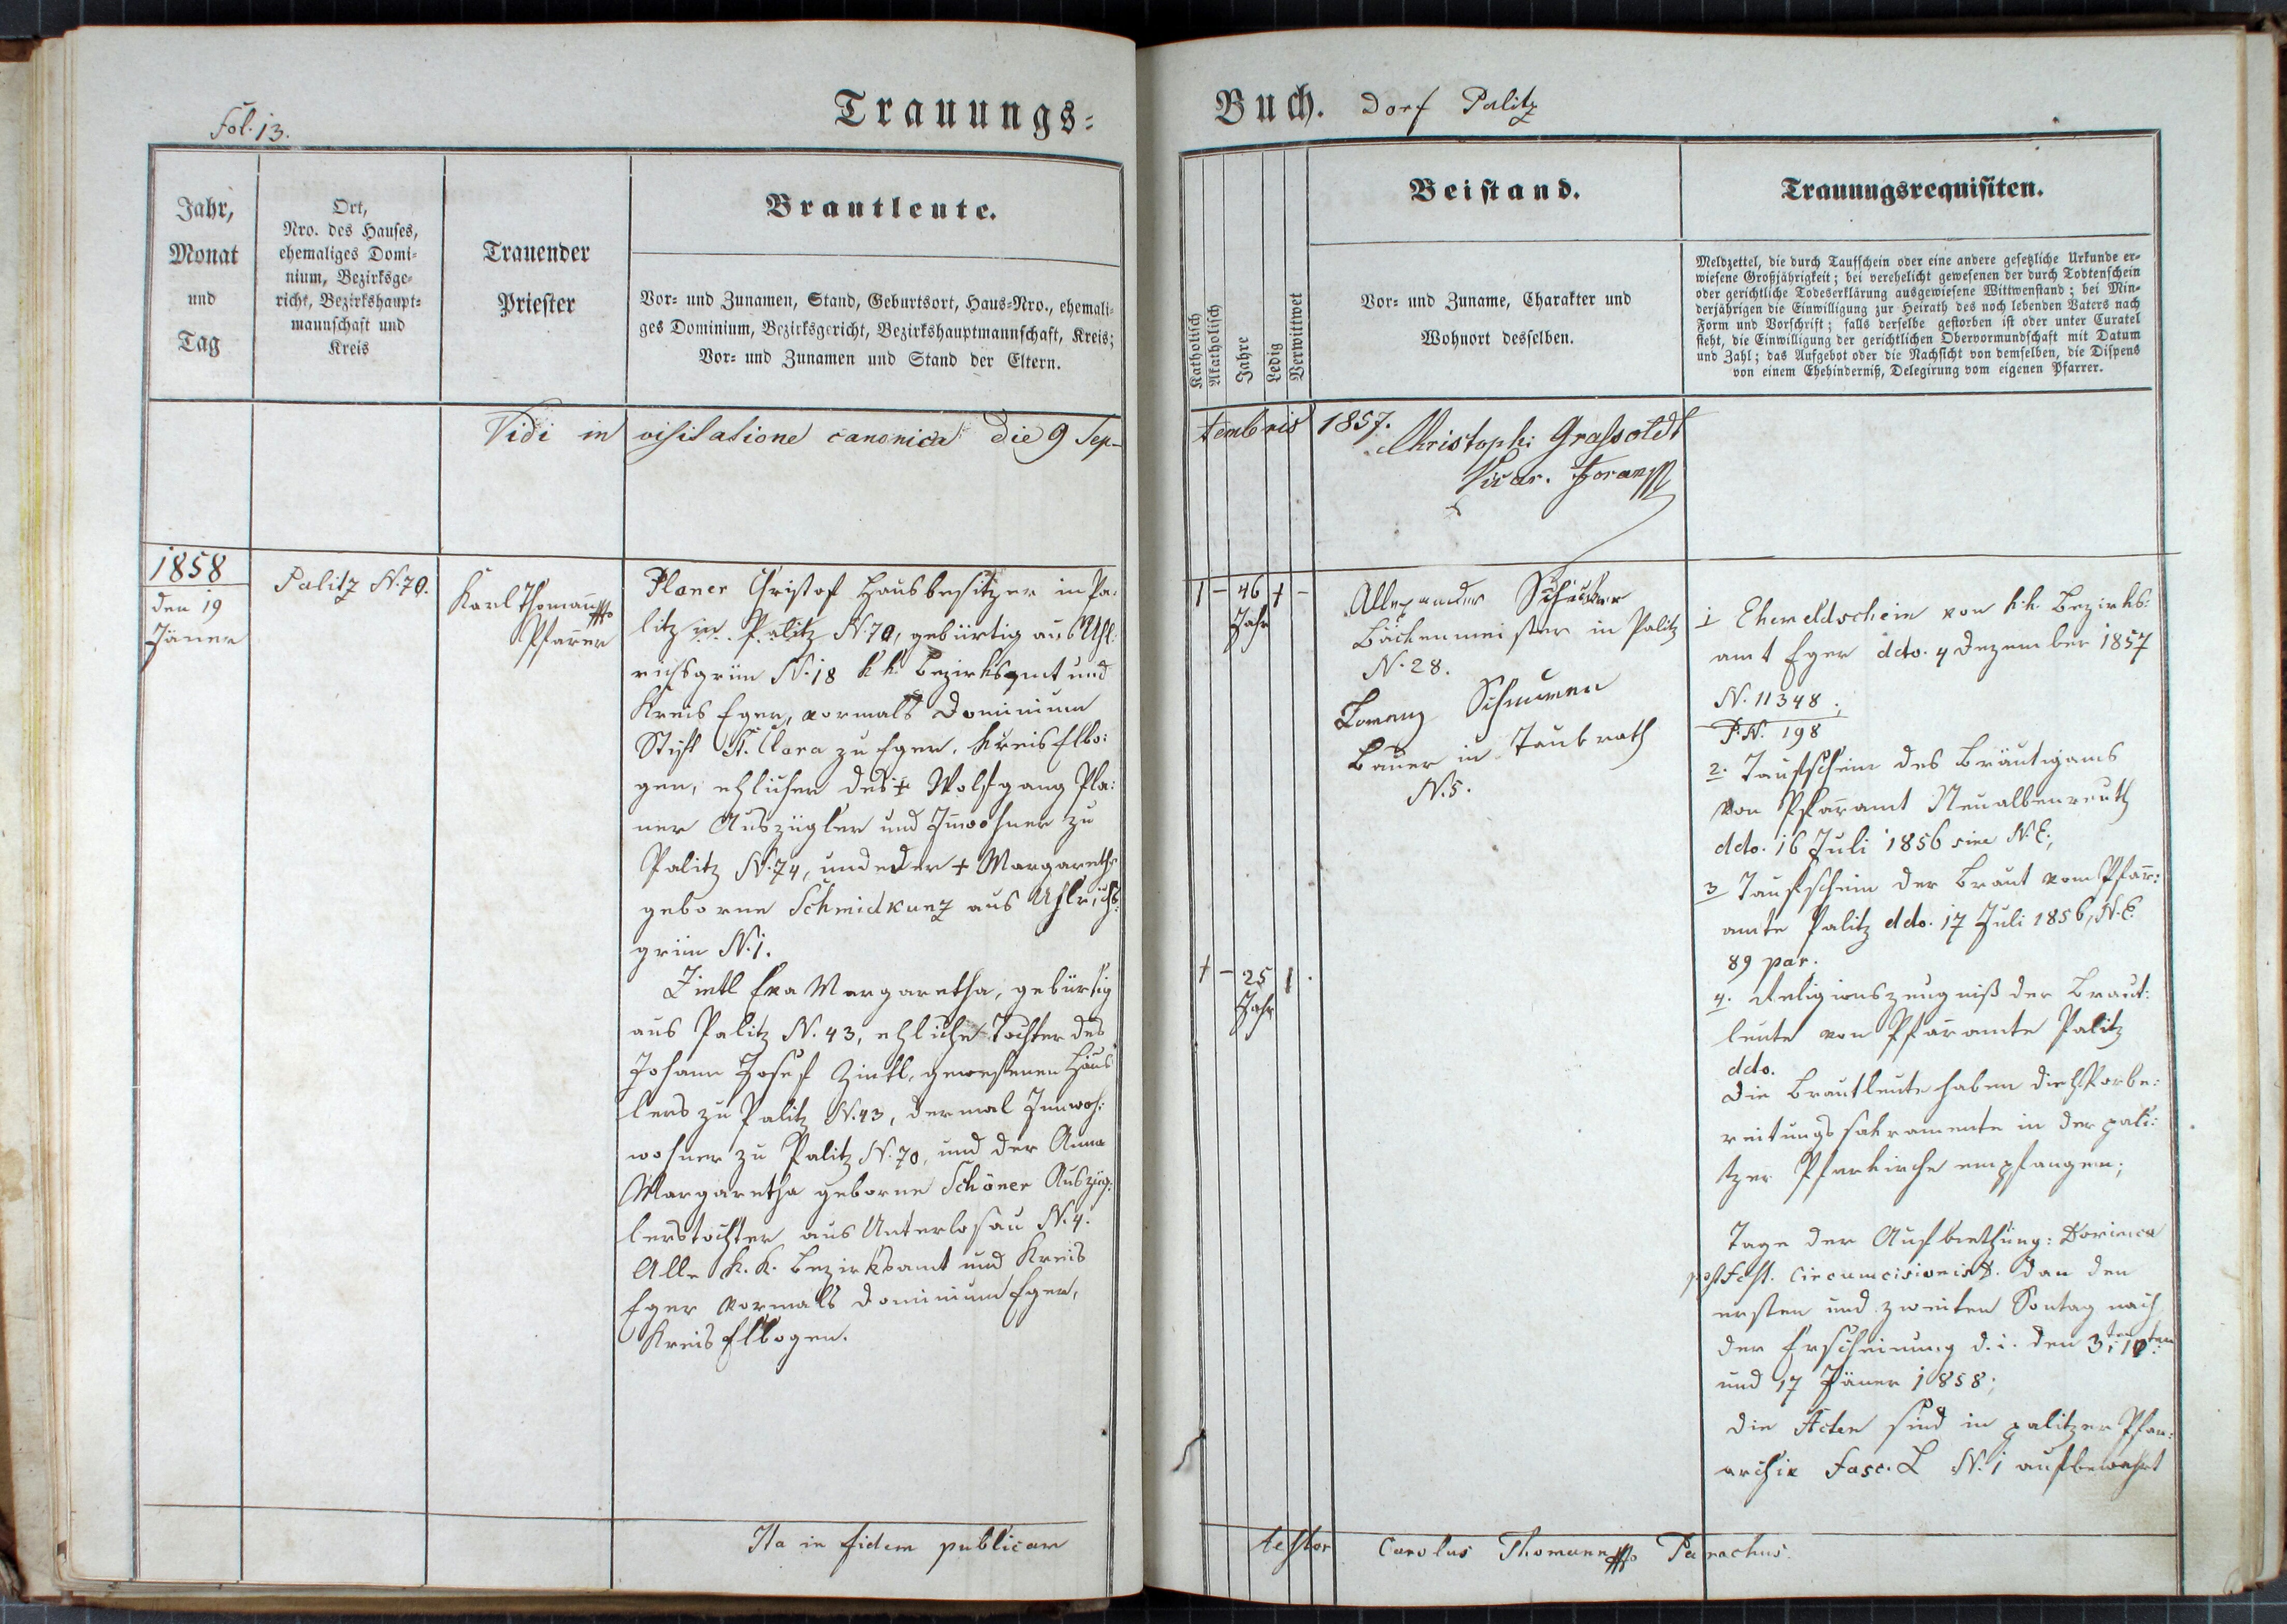 Fol. 13.
Trauungs-
Jahr,
Monat
und
Tag
Ort,
Nro. des Hauses,
ehemaliges Domi-
nium, Bezirksge-
richt, Bezirkshaupt-
mannschaft und
Kreis
Trauender
Priester
Brautleute.
Vor- und Zunamen, Stand, Geburtsort, Haus-Nro., ehemali-
ges Dominium, Bezirksgericht, Bezirkshauptmannschaft, Kreis;
Vor- und Zunamen und Stand der Eltern.
Vidi in visitatione canonica die 9 Sep-
1858
den 19
Jäner
Palitz N. 70.
Karl Thomann
Pfarrer
Planer Christof Hausbesitzer in Pa-
litz in Palitz N. 70, gebürtig aus Uhl-
richsgrün N. 18 k.k. Bezirksamt und
Kreis Eger, vormals Dominium
Stift St. Clara zu Eger, Kreis Elbo:
gen, ehlicher des + Wolfgang Pla:
ner Auszügler und Inwohner zu
Palitz N. 74, und der + Margaretha
geborne Schmidkunz aus Uhlrichs-
grün N. 1.
Zintl Eva Margaretha, gebürtig
aus Palitz N. 43, ehliche Tochter des
Johann Josef Zintl, gewesenen Häus
lers zu Palitz N. 43, dermal Inwoh:
wohner zu Palitz N. 70, und der Anna
Margaretha geborne Schöner Auszüg:
lerstochter aus Unterlosau N. 4.
Alle k.k. Bezirksamt und Kreis
Eger vormals Dominium Eger,
Kreis Elbogen.
Ita in fidem publicam
Buch. Dorf Palitz
Katholisch
Akatholisch
Jahre
Ledig
Verwittwet
Beistand.
Vor- und Zuname, Charakter und
Wohnort desselben.
Trauungsrequisiten.
Meldzettel, die durch Taufschein oder eine andere gesetzliche Urkunde er-
wiesene Großjährigkeit; bei verehelicht gewesenen der durch Todtenschein
oder gerichtliche Todeserklärung ausgewiesene Wittwenstand; bei Min-
derjährigen die Einwilligung zur Heirath des noch lebenden Vaters nach
Form und Vorschrift; falls derselbe gestorben ist oder unter Curatel
steht, die Einwilligung der gerichtlichen Obervormundschaft mit Datum
und Zahl; das Aufgebot oder die Nachsicht von demselben, die Dispens
von einem Ehehinderniß, Delegirung vom eigenen Pfarrer.
tembris 1857.
Christoph Grassoldt
Vicar. foran
1 - 46 1 -
Jahr
Schuster
Bäckermeister in Palitz
N. 28.
Lorenz
Bauer in Taubrath
N. 5.
1 - 25 1 .
Jahr
1 Ehemeldschein von k.k. Bezirks:
amt Eger ddo. 4 Dezember 1857
N. 11348;
P.N. 198
2. Taufschein des Bräutigams
von Pfarramt Neualbenreuth
ddo. 16 Juli 1856 sine N.E;
3 Taufschein der Braut vom Pfarr:
amte Palitz ddo. 17 Juli 1856, N.E.
89 par.
4. Religionszeugniß der Braut:
leute von Pfarramte Palitz
ddo.
Die Brautleute haben die Vorbe:
reitungssakramente in der pali:
tzer Pfarkirche empfangen;
Tage der Aufbiethung: Dominica
post fest. Circumcisionis D. dan den
ersten und zweiten Sontag nach
der Erscheinung d.i. den 3ten 10ten
und 17 Jäner 1858;
die Acten sind in palitzer Pfar:
archiv Fasc. L N. 1 aufbewahrt
testor Carolus Thomann Parochus.